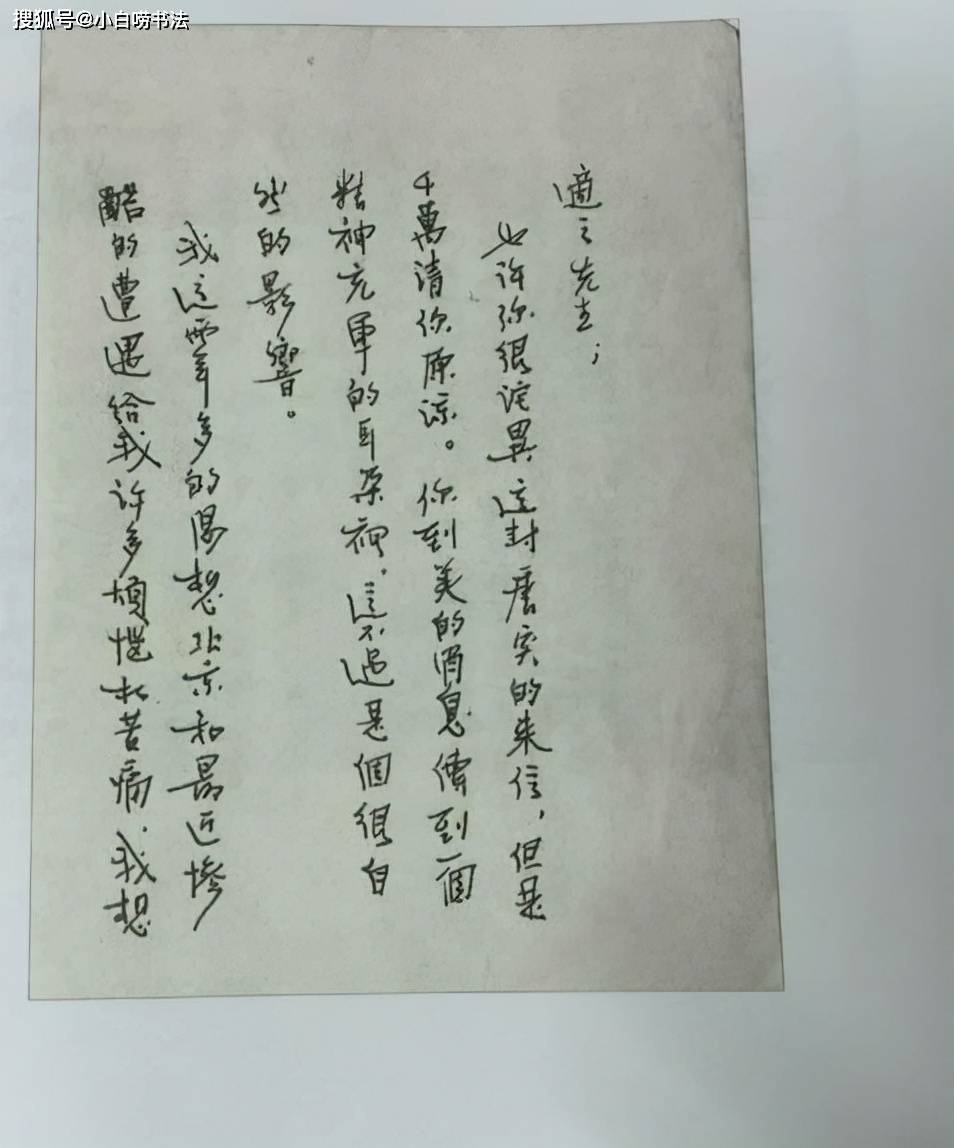 搜狐号@小白唠书法
適之先生；
也许你很诧異这封唐突的来信，但是
千萬请你原谅。你到美的消息傳到一個
精神充軍的耳朵裡，這不過是個很自
然的影響。
我这两年多的渴想北京和最近惨
酷的遭遇给我许多烦恼和苦痛．我想